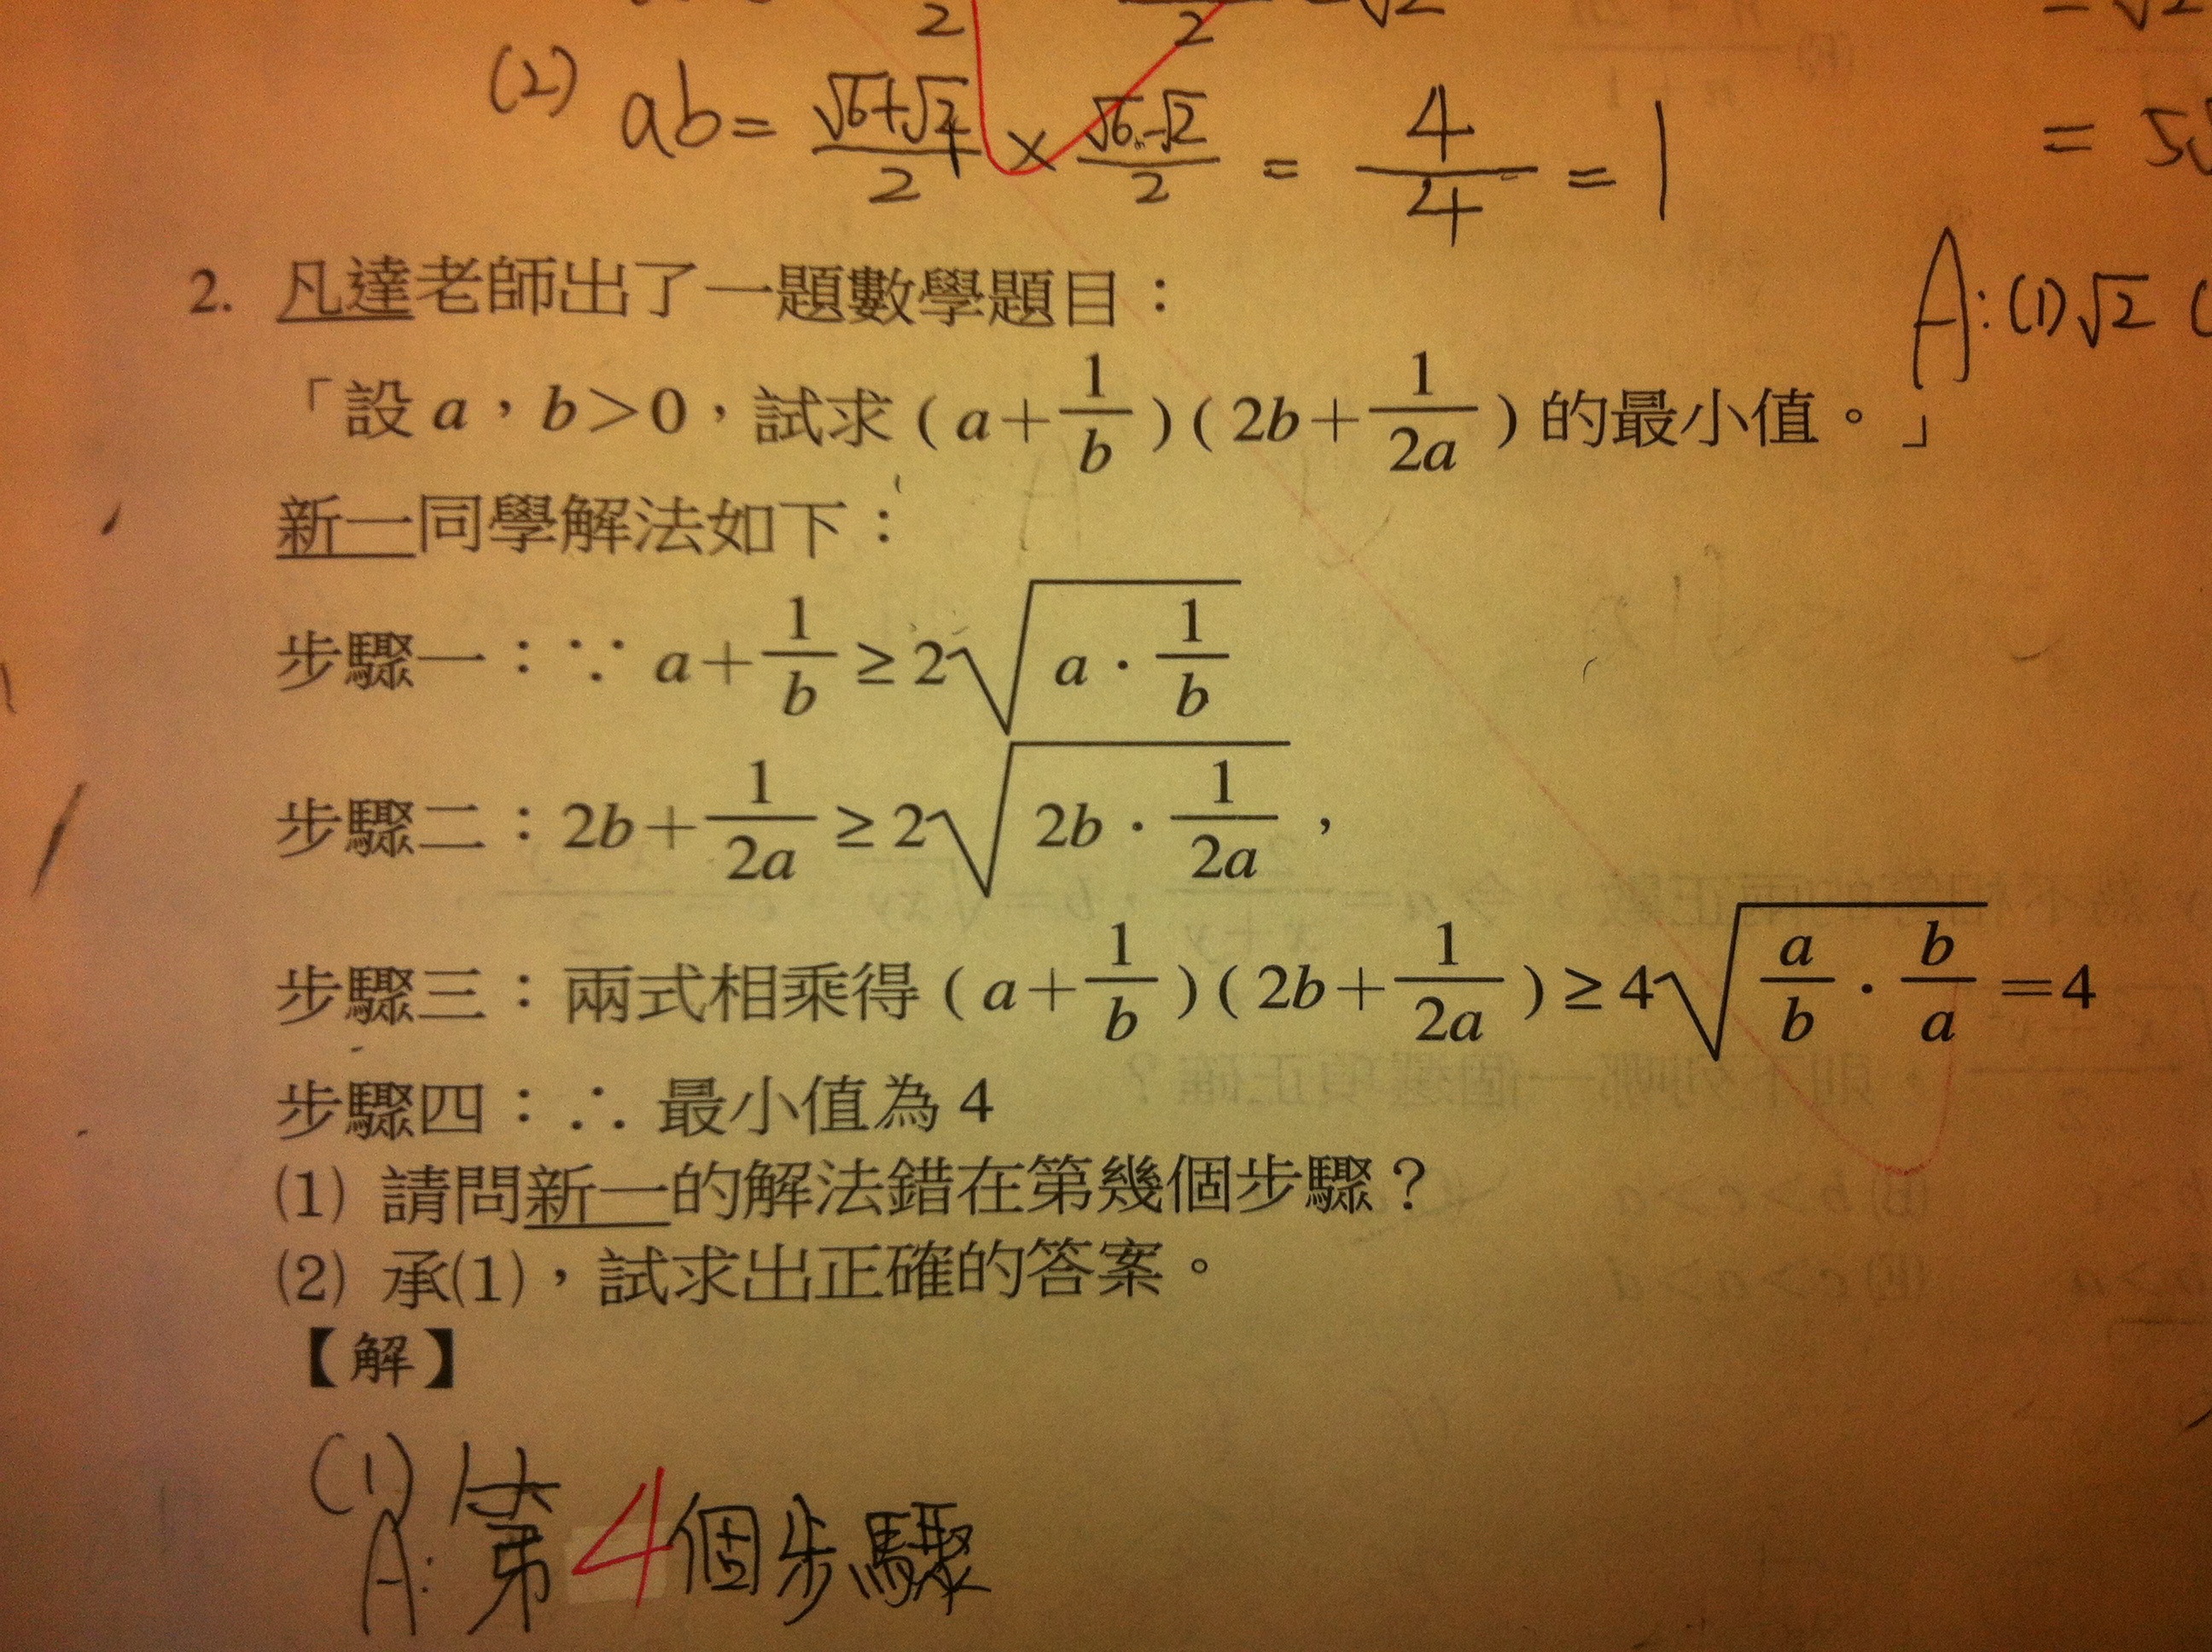 (2) ab = \frac{\sqrt{6}+\sqrt{2}}{2} × \frac{\sqrt{6}-\sqrt{2}}{2} = \frac{4}{4} = 1
A: (1) √2 (
2. 凡達老師出了一題數學題目：
「設 a，b＞0，試求 ( a＋\frac{1}{b} ) ( 2b＋\frac{1}{2a} ) 的最小值。」
新一同學解法如下：
步驟一：∵ a＋\frac{1}{b} ≥ 2\sqrt{a · \frac{1}{b}}
步驟二：2b＋\frac{1}{2a} ≥ 2\sqrt{2b · \frac{1}{2a}}，
步驟三：兩式相乘得 ( a＋\frac{1}{b} ) ( 2b＋\frac{1}{2a} ) ≥ 4\sqrt{\frac{a}{b} · \frac{b}{a}}＝4
步驟四：∴ 最小值為 4
(1) 請問新一的解法錯在第幾個步驟？
(2) 承(1)，試求出正確的答案。
【解】
(1)
A: 第4個步驟